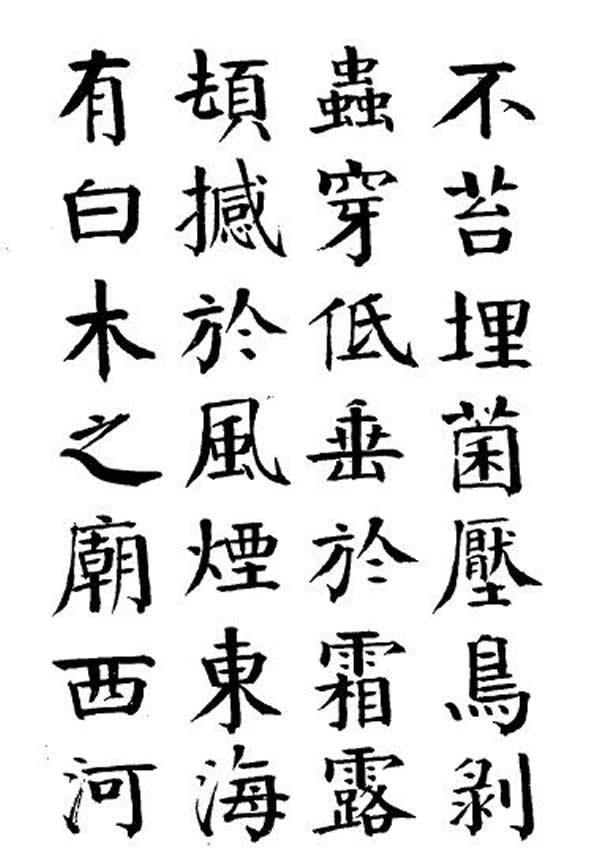 不苔埋菌壓鳥剥
蟲穿低垂於霜露
頓撼於風煙東海
有白木之廟西河